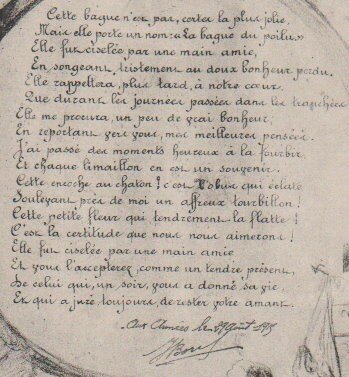 Cette bague n'est pas, certes la plus jolie,
Mais elle porte un nom: «La bague du poilu»
Elle fut ciselée par une main amie,
En songeant, tristement au doux bonheur perdu.
Elle rappellera, plus tard, à notre cœur.
Que durant les journées passées dans les tranchées
Elle me procura, un peu de vrai bonheur,
En reportant vers vous, mes meilleures pensées.
J'ai passé des moments heureux à la fourbir
Et chaque limaillon en est un souvenir.
Cette encoche au chaton! c'est l'obus qui éclate
Soulevant près de moi un affreux tourbillon!
Cette petite fleur qui tendrement la flatte!
C'est la certitude que nous nous aimerons!
Elle fut ciselée par une main amie
Et vous l'accepterez, comme un tendre présent,
De celui qui, un soir, vous a donné sa vie
Et qui a juré, toujours, de rester votre amant.
Aux Armées le Août 1915